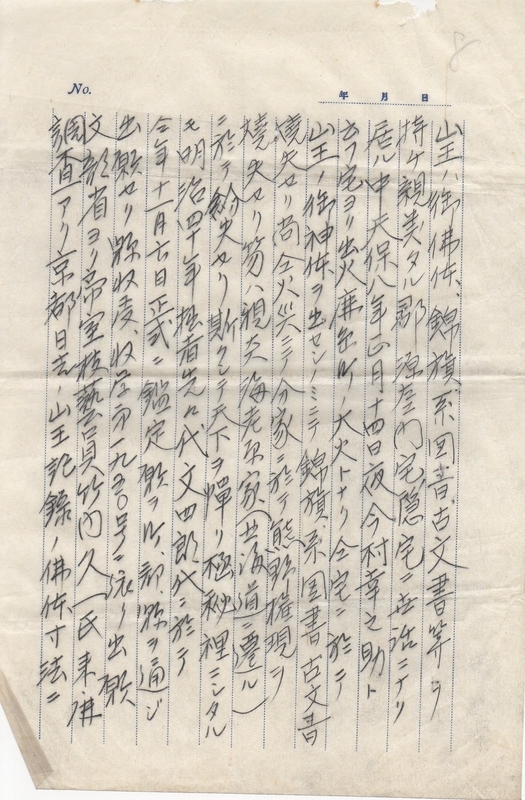 8
No.
年 月 日
山王ハ御佛体、錦旗系図書、古文書等ヲ
持ケ親类タル郡 源左エ門宅隠宅ニ世話ニナリ
居ル中天保八年正月十四日夜今村幸之助ト
云フ宅ヨリ出火 町ノ大火トナリ仝宅ニ於テ
山王ノ御神体ヲ出セシノミニテ錦旗系図書古文書
焼失セリ尚仝火災ニテ分家ニ於テ熊野権現ヲ
焼失セリ笏ハ親类海老原家(北海道ニ遷ル)
ニ於テ紛失セリ斯クシテ天下ヲ憚リ極秘裡ニシタル
モ明治四十年拙者先代文四郎代ニ於テ
仝年十一月六日正式ニ鑑定願ヲ町、郡、縣ヲ通ジ
出願セリ縣收受、收学第一九五〇号ニ依リ出願
文部省ヨリ帝室技藝員竹内久一氏来
調査アリ京都日吉ノ山王記録ノ佛体寸法ニ